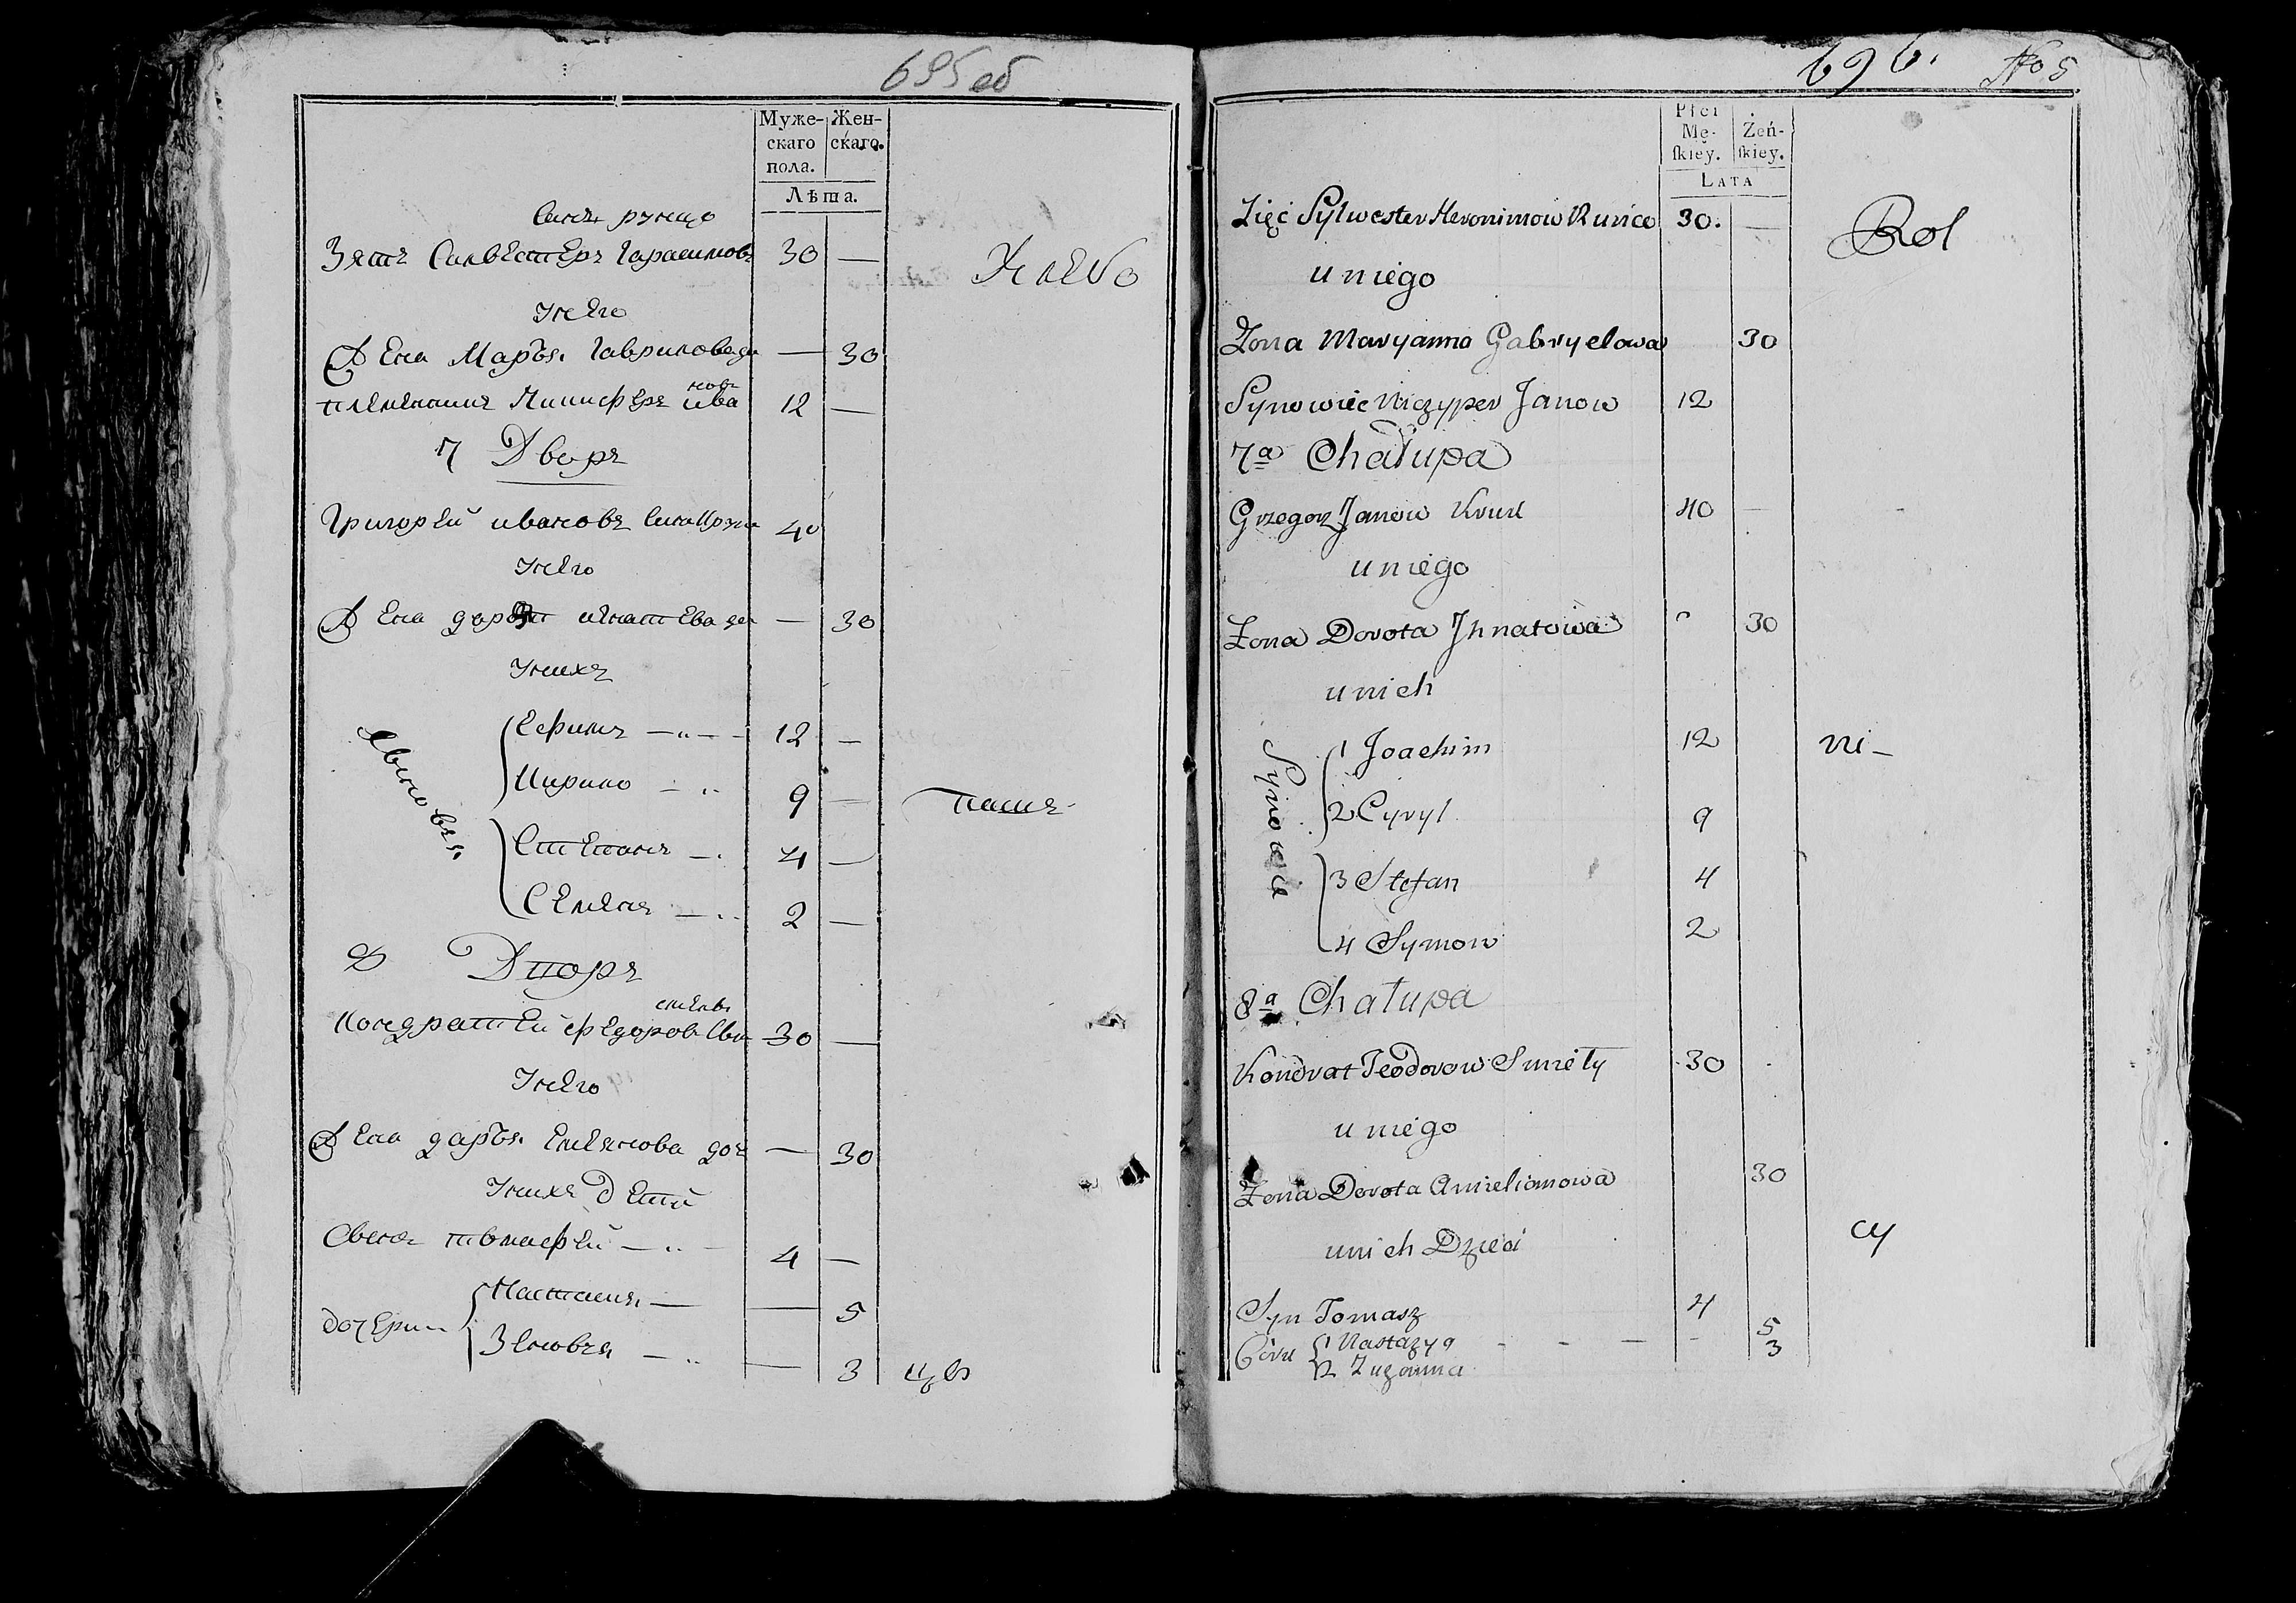 695 об
Муже-
скаго
пола.
Жен-
скаго.
Лѣта.
сынъ
Зять Силвестеръ Гарасимовъ 30 —
Унего
Жена Марья Гаврилова до 30
племеникъ Ничиферъ Ива 12 —
новъ
7 Дворъ
Григорей Ивановъ сынъ 40
Унего
Жена Игнатева до — 30
Унихъ
Сыновья
Ефимъ 12 —
Кирило 9 —
Степанъ 4 —
Семенъ 2 —
8 Дворъ
Кондратей Федоров 30 —
Унего
Жена Дарья Емельянова доч — 30
Унихъ дети
Сынъ Тимофей 4 —
дочери
Настасия — 5
Зеновья — 3
696. No 5
Płci
Mę-
skiey.
Żeń-
skiey.
LATA
Zięć Sylwester Heronimow Kunico 30. —
Rol
u niego
Żona Maryanna Gabryelowa 30
Synowiec Niczyper Janow 12
7a Chałupa
Grzegorz Janow Kruk 40 —
u niego
Żona Dorota Jhnatowa 30
u nich
Synowie
1 Joachim 12
ni –
2 Cyryl 9
3 Stefan 4
4 Symon 2
8a Chałupa
Kondrat Teodorow Smiety 30
u niego
Żona Dorota Amielianowa 30
u nich Dzieci
cy
Syn Tomasz 4
Córki 1 Nastazya - - — - 5
2 Zuzanna 3